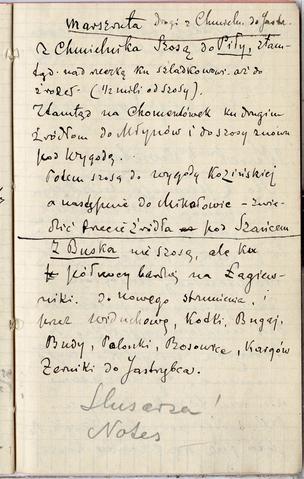 Marszruta drogi z Chmieln. do Jastrz.
Z Chmielnika szosą do Piły, stam-
tąd nad rzeczką ku szladkowowi aż do
źródeł (1/2 mili od szosy).
Stamtąd na Chomentówek ku drugim
źródłom do Młynów i do szosy znowu
pod Wygodą.
Potem szosą do wygody Kozińskiej
a następnie do Mikułowic - zwie-
dzić trzecie źródła pod Szańcem
Z Buska nie szosą, ale ku
północy bardziej na Łagiew-
niki. do nowego strumienia, i
przez widuchowę, Kotki, Bugaj,
Budy, Palonki, Bosowice, Kargów
Żerniki do Jastrzębca.
Slusarza!
Notes